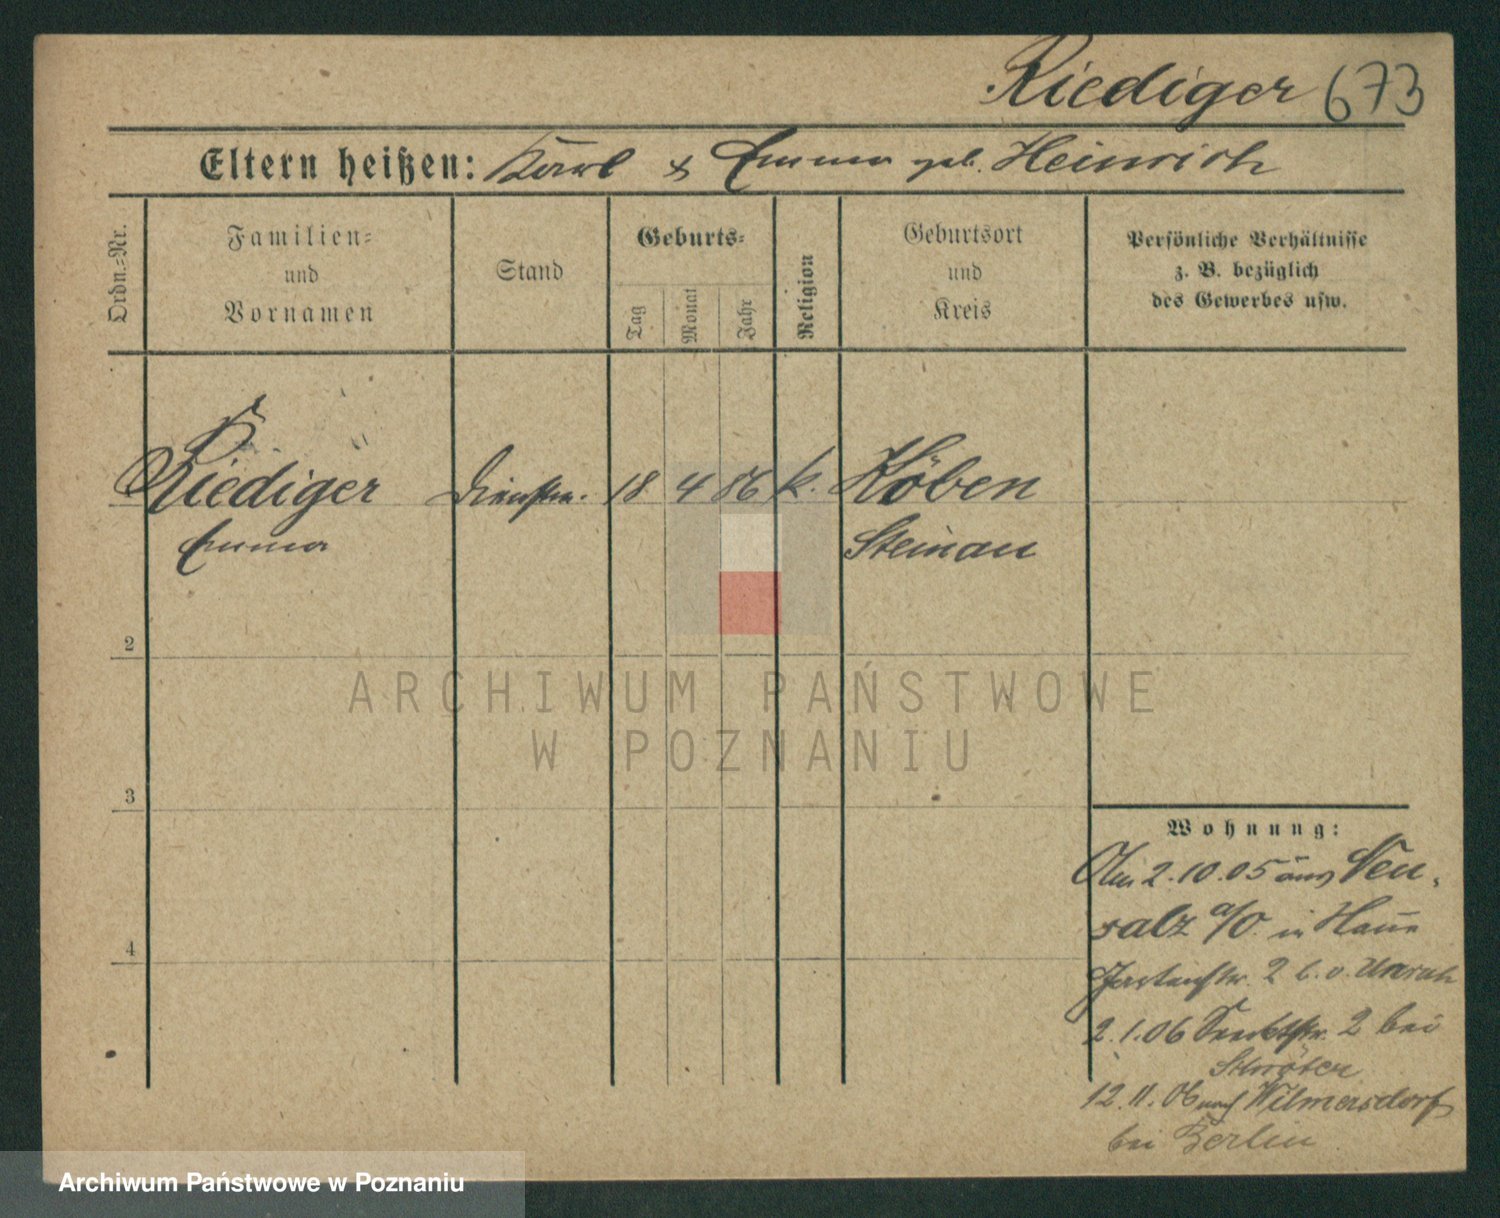 Riediger 673
Eltern heißen: Karl & Emma geb. Heinrich
Ordn.-Nr.
Familien-
und
Vornamen
Stand
Geburts-
Tag
Monat
Jahr
Religion
Geburtsort
und
Kreis
Persönliche Verhältnisse
z. B. bezüglich
des Gewerbes usw.
Riediger Dienstm. 18 4 86 k. Köben
Emma Steinau
2
3
4
Wohnung:
Am 2.10.05 aus Neu-
salz a/O. in
Gartenstr. 2 b. v. Unruh
2.1.06 2 bei
Schröter
12.11.06 nach Wilmersdorf
bei Berlin
ARCHIWUM PAŃSTWOWE
W POZNANIU
Archiwum Państwowe w Poznaniu